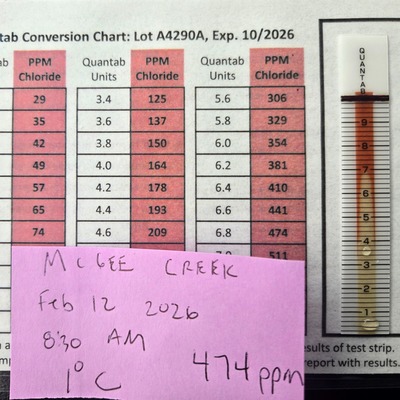 tab Conversion Chart: Lot A4290A, Exp. 10/2026
PPM Chloride Quantab Units PPM Chloride Quantab Units PPM Chloride
29 3.4 125 5.6 306
35 3.6 137 5.8 329
42 3.8 150 6.0 354
49 4.0 164 6.2 381
57 4.2 178 6.4 410
65 4.4 193 6.6 441
74 4.6 209 6.8 474
511
QUANTAB
9
8
7
6
5
4
3
2
1
McGEE CREEK
Feb 12 2026
8:30 AM
1°C
474 ppm
sults of test strip.
report with results.